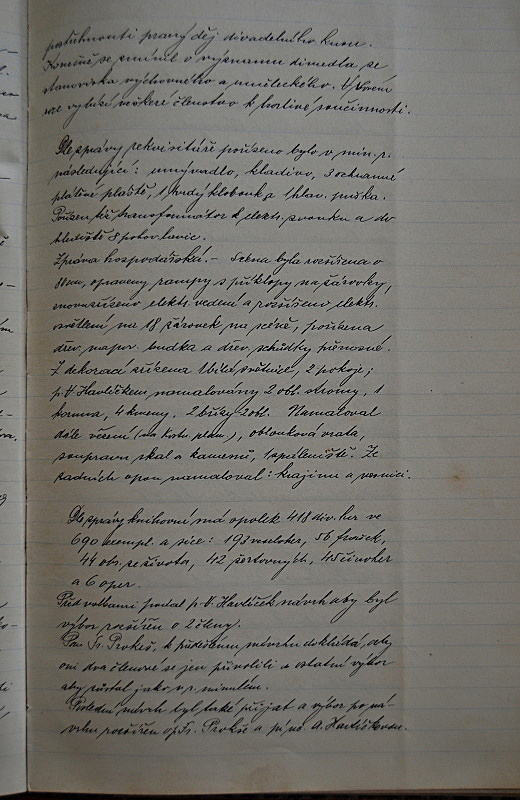 postihnouti pravý děj divadelního kusu.
Konečně se zmínil o významu divadla se
stanoviska výchovného a uměleckého. Úvodem
své vybízí veškeré členstvo k horlivé součinnosti.
Dle zprávy rekvisitáře pořízeno bylo v min. r.
následující: umývadlo, kladivo, 3 ochranné
plátěné pláště, 1 tvrdý klobouk a 1 hlav. puška.
Pořízen též transformátor k elektr. zvonku a do
hlediště 8 polov. lavic.
Zpráva hospodářská. – Scéna byla rozšířena o
80cm, opraveny rampy s příklopy na žárovky,
znovuzřízeno elektr. vedení a rozšířeno elektr.
osvětlení na 18 žárovek na scéně, pořízena
dřev. nápov. budka a dřev. schůdky přenosné.
Z dekorací zřízena 1 bílá světnice, 2 pokoje;
p. V. Havlíčkem namalovány 2 obl. stromy, 1
koruna, 4 kmeny, 2 břízy 2 obl. Namaloval
dále vězení (na Kosts. plen.), oblouková vrata,
soupravu skal a kamenů, 1 spáleniště. Ze
zadních opon namaloval: krajinu a vesnici.
Dle zprávy knihovní má spolek 418 div. her ve
690 exempl. a sice: 193 veseloher, 56 frašek,
44 obr. ze života, 42 žertovných, 45 činoher
a 6 oper.
Před volbami podal p. V. Havlíček návrh aby byl
výbor rozšířen o 2 členy.
Pan Fr. Prokš, k předešlému návrhu dokládá, aby
oni dva členové se jen přivolili a ostatní výbor
aby zůstal jako v r. minulém.
Poslední návrh byl také přijat a výbor po ná-
vrhu rozšířen o p. Fr. Prokše a pí. A. Havlíčkovou.